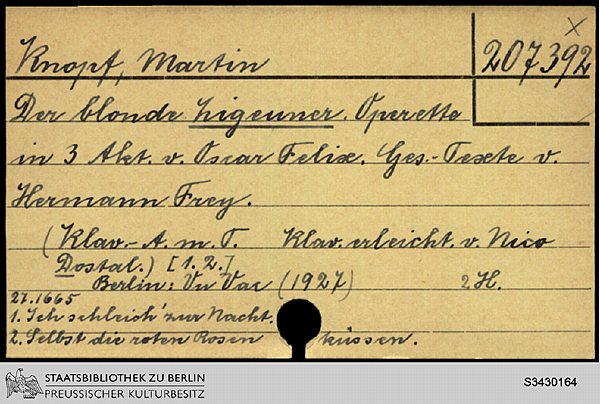 Knopf, Martin
207392
Der blonde Zigeuner. Operette
in 3 Akt. v. Oscar Felix. Ges.-Texte v.
Hermann Frey.
(Klav.-A. m. T. Klav. erleicht. v. Nico
Dostal.) [1.2.]
Berlin: Vn Var (1927) 2 H.
27.1665
1. Ich schleich' zur Nacht.
2. Selbst die roten Rosen küssen.
STAATSBIBLIOTHEK ZU BERLIN
PREUSSISCHER KULTURBESITZ
S3430164